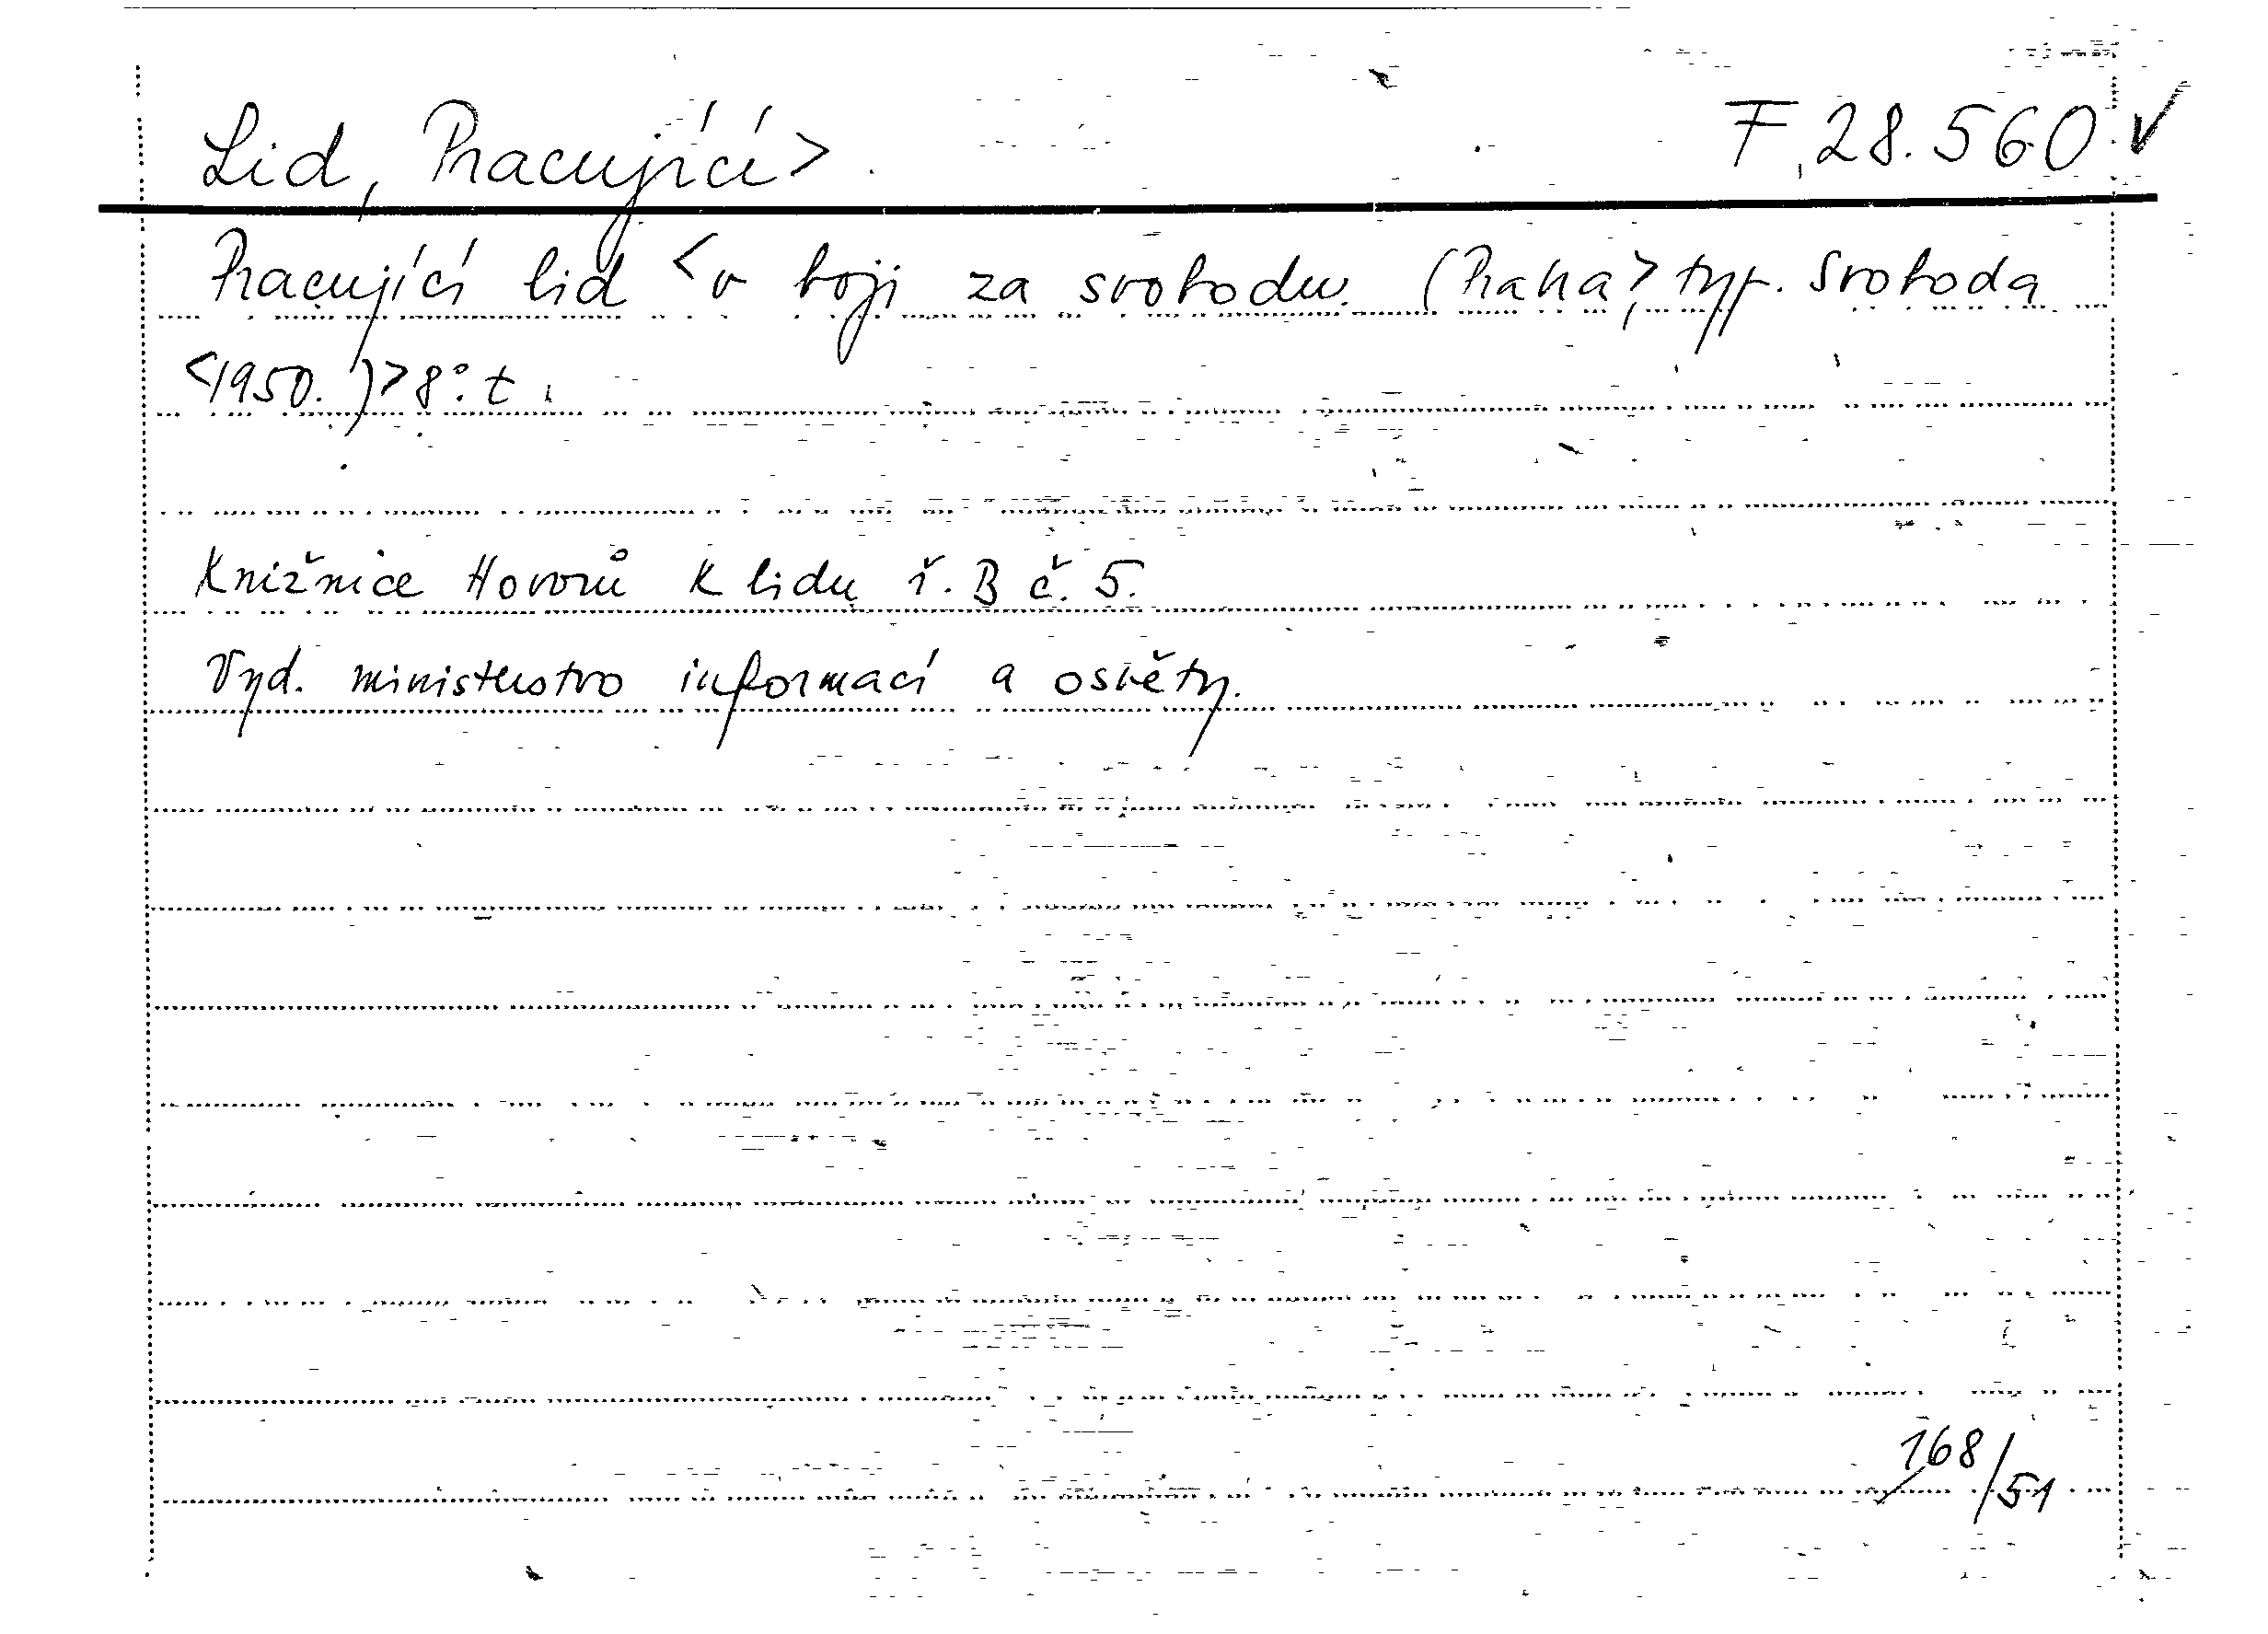 Lid, Pracující> F, 28.560 ✓
Pracující lid <v boji za svobodu. (Praha>, typ. Svoboda
<1950.)> 8°. t.
Knižnice Hovorů k lidu ř. B č. 5.
Vyd. ministerstvo informací a osvěty.
168/51